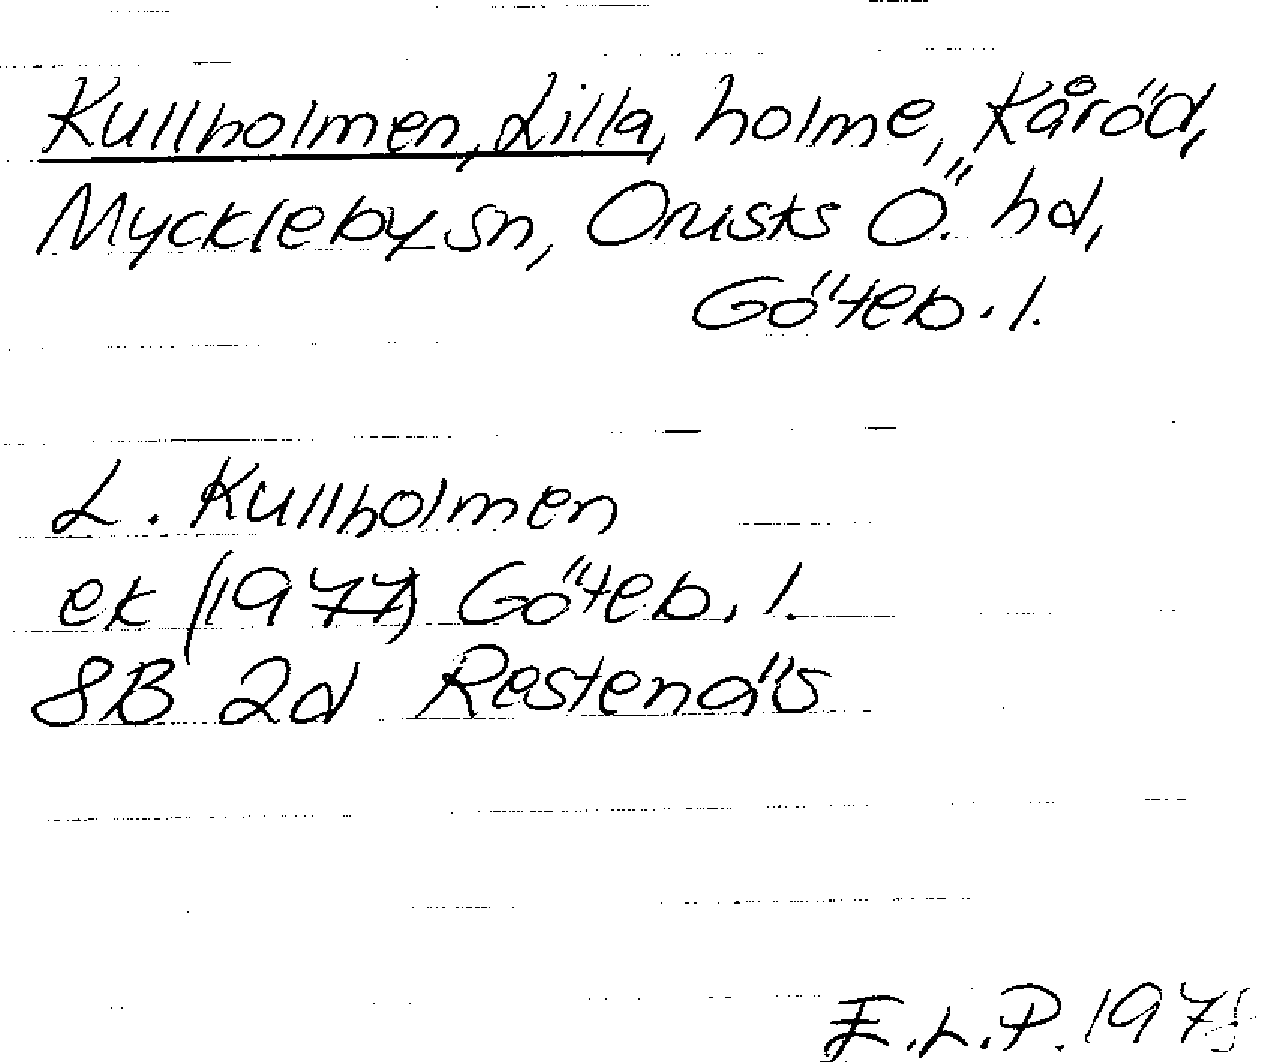 Kullholmen, Lilla, holme, Kåröd,
Myckleby sn, Orusts Ö. hd,
Göteb. l.
L. Kullholmen
ek (1977) Göteb. l.
8B 2d Restenäs
E.L.P.